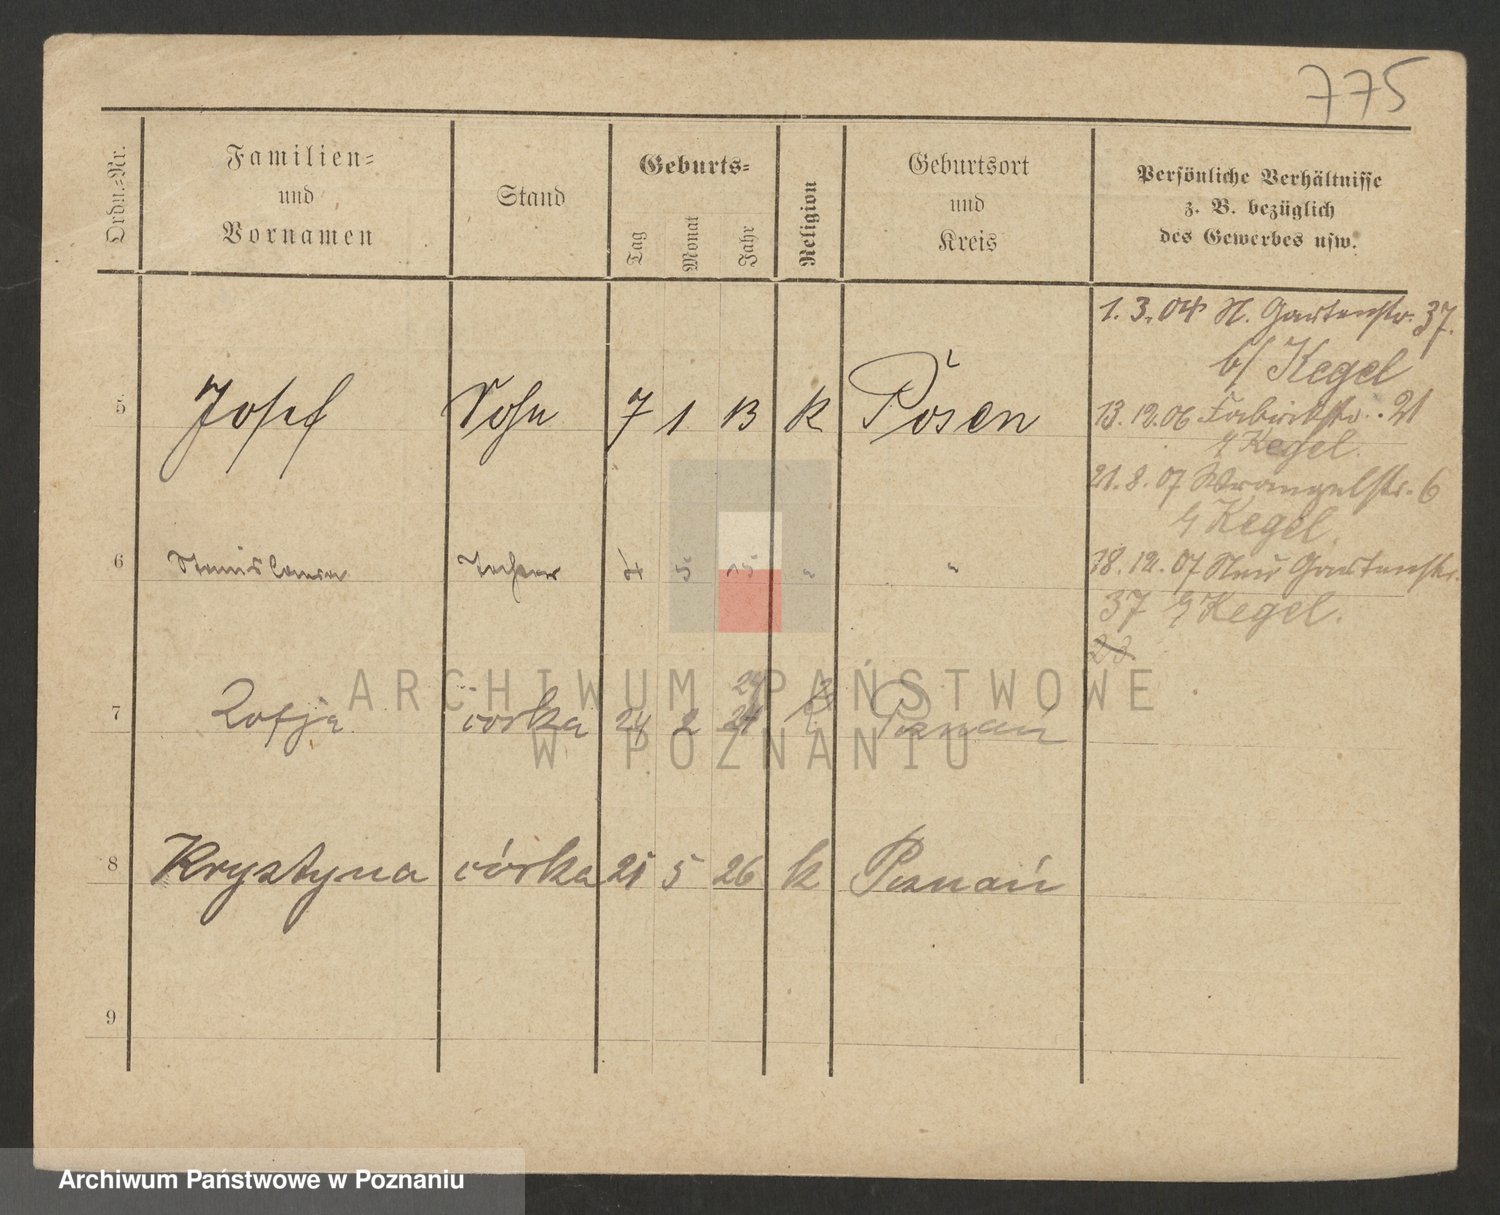 775
Ordn.-Nr.
Familien-
und
Vornamen
Stand
Geburts-
Tag
Monat
Jahr
Religion
Geburtsort
und
Kreis
Persönliche Verhältnisse
z. B. bezüglich
des Gewerbes usw.
1. 3. 04 N. Gartenstr. 37.
b/ Kegel
5 Josef Sohn 7 1 13 k Posen
13. 12. 06 Fabrikstr. 21
Kegel.
21. 8. 07 Wrangelstr. 6
Kegel.
6 Stanislawa Tochter 4 5 15 " "
18. 12. 07 Neu Gartenstr.
37 Kegel.
ARCHIWUM PAŃSTWOWE
W POZNANIU
7 Zofja córka 24 2 24 Poznań
8 Krystyna córka 21 5 26 k Poznań
9
Archiwum Państwowe w Poznaniu